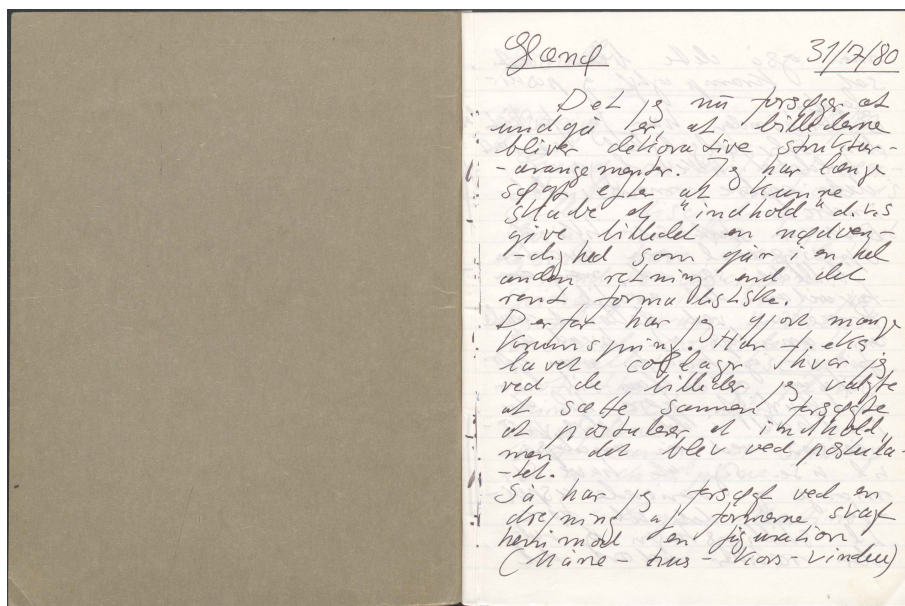 31/7/80
Det jeg nu forsøger at
undgå er, at billederne
bliver dekorative struktur-
-arangementer. Jeg har længe
søgt efter at kunne
skabe et "indhold" d.v.s
give billedet en nødven-
-dighed som går i en hel
anden retning end det
rent formalistiske.
Derfor har jeg gjort mange
krumspring. Har f. eks
lavet collager hvor jeg
ved de billeder jeg valgte
at sætte sammen forsøgte
at postulere et indhold,
men det blev ved postula-
-tet.
Så har jeg forsøgt ved en
drejning af formerne svagt
hen imod en figuration
(Måne - hus - kors - vindue)